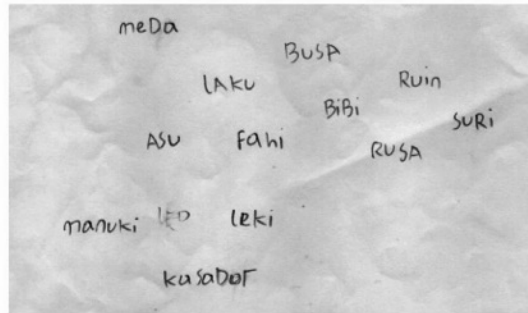 meDa
BUSA
LAKU
Ruin
BiBi
SURi
ASU
Fahi
RUSA
manuki
LEO
leki
kasaDor